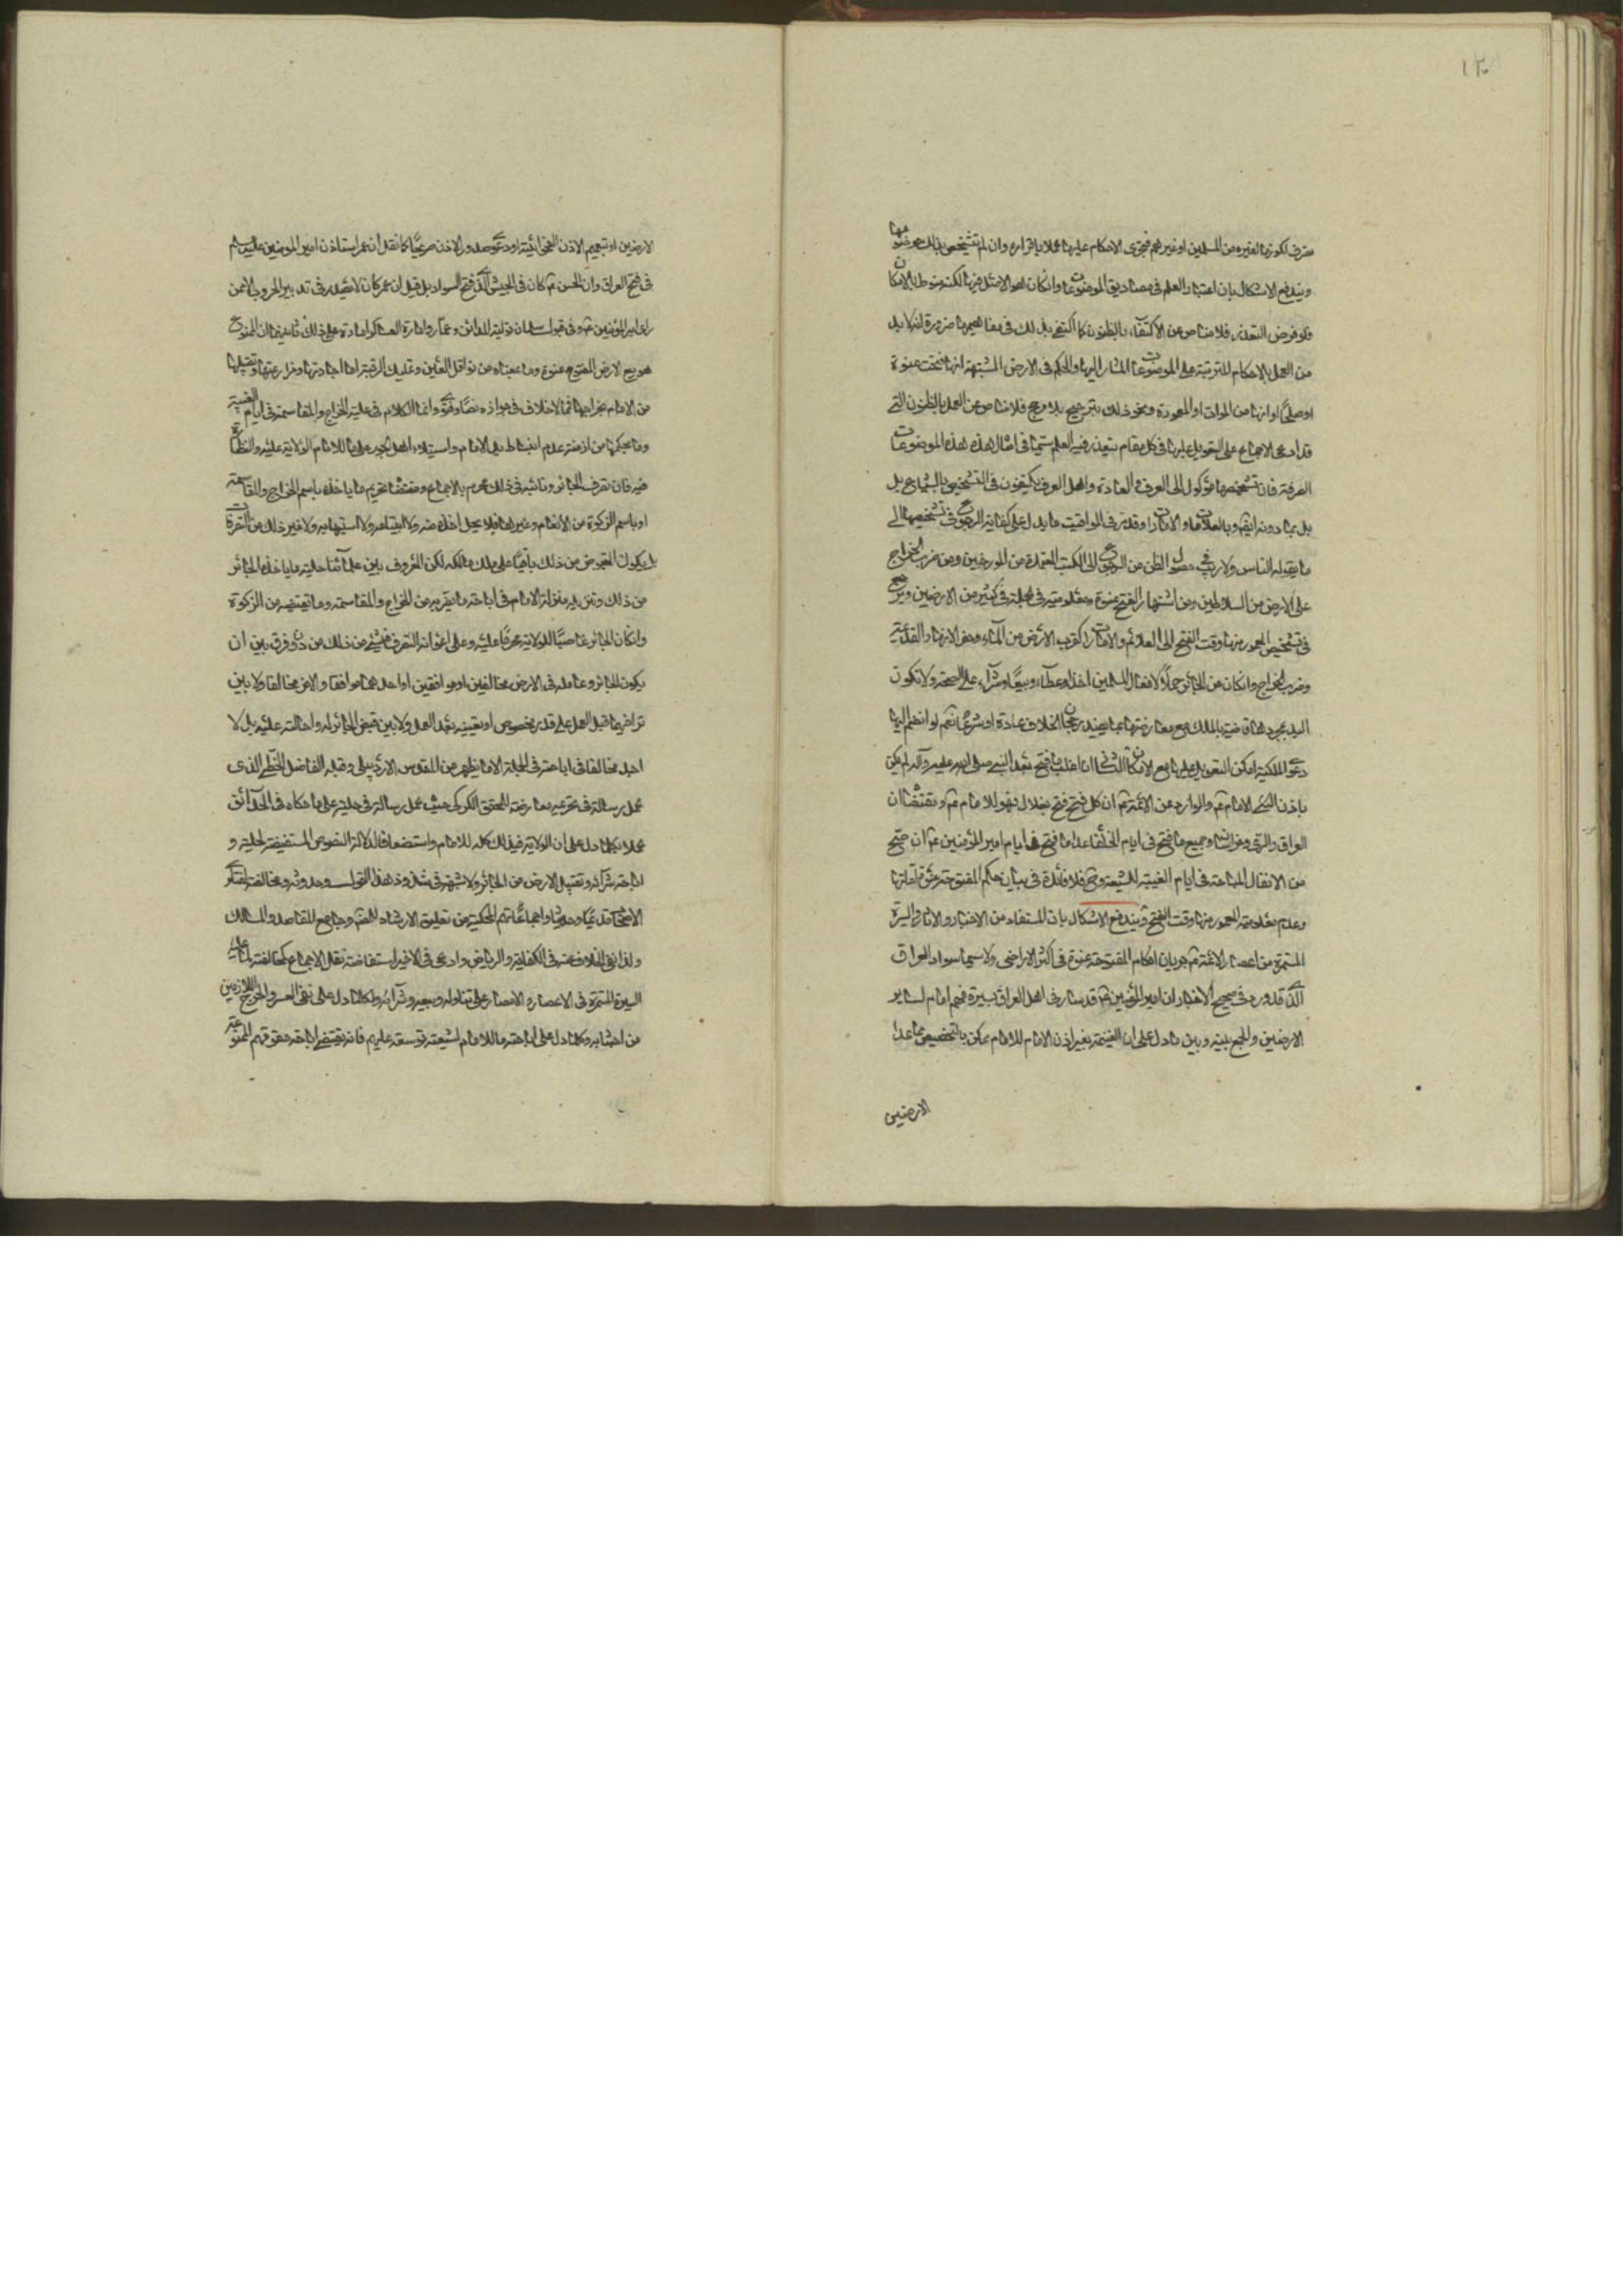 ١٣٠
متصرف لكونها لغيره من المسلمين او غيرهم فتجرى الاحكام عليها عملا باقراره وان لم تتشخص بذلك معروضها
ويندفع الاشكال بان اعتبار العلم فى مصاديق الموضوعات وان كان هو الامثل فيها لكنه منوط بالامكان
فلو فرض التعذر فلا مناص عن الاكتفاء بالظنون كما اكتفى بذلك فى مفاهيمها ضرورة انه لا بد
من العمل بالاحكام المترتبة على الموضوعات المشار اليها والحكم فى الارض المشتبهة انها فتحت عنوة
او صلحًا او انها من الموات او المعمورة ونحو ذلك بترجيح بلا مرجح فلا مناص عن العمل بالظنون التى
قد ادعى الاجماع على التعويل عليها فى كل مقام يتعذر فيه العلم سيّما فى امثال هذه الموضوعات
العرفية فان تشخيصها موكول الى العرف والعادة واهل العرف يكتفون فى التشخيص بالشياع بل
بل بما دونه ايضًا وبالعلامات والامارات وقد مر فى المواقيت ما يدل على كفاية الرجوع فى تشخيصها الى
ما يقوله الناس ولا ريب فى حصول الظن من الرجوع الى الكتب المعتمدة من المورخين ومن ضرب الخراج
على الارض من السلاطين ومن اشتهار الفتح عنوة ومعلوميته فى الجملة فى كثير من الارضين ويرجع
فى تشخيص المعمور منها وقت الفتح الى العلائم والامارات كقرب الارض من الماء وحفر الانهار القديمة
وضرب الخراج وان كان من الجائر حملًا لافعال المسلمين اخذا وعطاء وبيعًا وشراء على الصحة ولا تكون
اليد بمجردها قاضية بالملك مع معارضتها بما يفيد رجحان الخلاف عادة او شرعًا نعم لو انضم اليها
دعوى الملكية امكن التعويل عليها مع الامكان الثانى ان اغلب ما فتح بعد النبى صلى الله عليه وآله لم يكن
باذن النبى او الامام ع والوارد عن الائمة ع ان كل فتح فتح بضلال فهو للامام ع ومقتضاه ان
العراق والرى وخراسان وجميع ما فتح فى ايام الخلفاء عدا ما فتح فى ايام امير المؤمنين ع ان صح
من الانفال المباحة فى ايام الغيبة للشيعة وح فلا فائدة فى بيان حكم المفتوحة عنوة لقلتها
وعدم معلومية المعمور منها وقت الفتح ويندفع الاشكال بان المستفاد من الاخبار والاثار والسيرة
المستمرة من اعصار الائمة ع جريان احكام المفتوحة عنوة فى اكثر الاراضى ولا سيما سواد العراق
الذى قد ورد فى صحيح الاخبار ان امير المؤمنين ع قد سار فى اهل العراق بسيرة فهم امام لسائر
الارضين والجمع بينه وبين ما دل على ان الغنيمة بغير اذن الامام للامام ممكن بالتخصيص بما عدا
الارضين
الارضين او بتعميم الاذن للفحوائية او دعوى صدور الاذن صريحًا كما نقل ان عمر استاذن امير المؤمنين عليه السلام
فى فتح العراق وان الحسن ع كان فى الجيش الذى فتح السواد بل قيل ان عمر كان لا يصدر فى تدبير الحروب الا عن
راى امير المؤمنين ع وفى قبول سلمان تولية المدائن وعمار امارة العساكر امارة على ذلك ثانيهما ان الممنوع
هو بيع الارض المفتوحة عنوة وما بمعناه من نواقل العين وتمليك الرقبة اما اجارتها ومزارعتها وتقبيلها
من الامام بخراجها فمما لا خلاف فى جوازه نصًا وفتوى وانما الكلام فى حلية الخراج والمقاسمة فى ايام الغيبة
وما بحكمها من ازمنة عدم انبساط يد الامام واستيلاء اهل الجور على ما للامام الولاية عليه والنظارة
فيه فان تصرف الجائر وتاثيره فى ذلك محرم بالاجماع ومقتضاه تحريم ما ياخذه باسم الخراج والمقاسمة
او باسم الزكوة من الانعام وغيرها فلا يحل اخذه منه ولا ابتياعه ولا استيهابه ولا غير ذلك من التصرفات
بل يكون المقبوض من ذلك باقيًا على ملك مالكه لكن المعروف بين علمائنا حلية ما ياخذه الجائر
من ذلك وتنزيله منزلة الامام فى اباحة ما يقرره من الخراج والمقاسمة وما يقبضه من الزكوة
وان كان الجائر غاصبًا للولاية محرمًا عليه وعلى اعوانه التصرف فى شئ من ذلك من دون فرق بين ان
يكون الجائر وعامله فى الارض مخالفين او موافقين او احدهما موافقا والاخر مخالفا ولا بين
تراضيهما قبل العمل على قدر مخصوص او تعيينه بعد العمل ولا بين قبض الجائر له واحالته عليه بل لا
اجد مخالفا فى اباحته فى الجملة الا ما يظهر من المقدس الاردبيلى وقبله الفاضل القطيفى الذى
عمل رسالة فى تحريمه معارضة للمحقق الكركى حيث عمل رسالة فى حليته على ما حكاه فى الحدائق
عملا بكلما دل على ان الولاية فى ذلك كله للامام واستضعافا لدلالة النصوص المستفيضة لحليته و
اباحة شرائه وتقبيل الارض من الجائر ولا شبهة فى شذوذ هذا القول وحدوثه ومخالفته لفتاوى
الاصحاب قديمًا وحديثًا واجماعاتهم المحكية من تعليق الارشاد للمص وجامع المقاصد والمسالك
ولذا نفى الخلاف عنه فى الكفاية والرياض وادعى فى الاخير استفاضة نقل الاجماع كمخالفته لما عليه
السيرة المستمرة فى الاعصار والامصار على تناوله وبيعه وشرائه ولكلما دل على نفى العسر والحرج اللازمين
من اجتنابه وكلما دل على اباحة ما للامام لشيعته توسعة عليهم فانه يقتضى اباحة حقوقهم الممنوعة